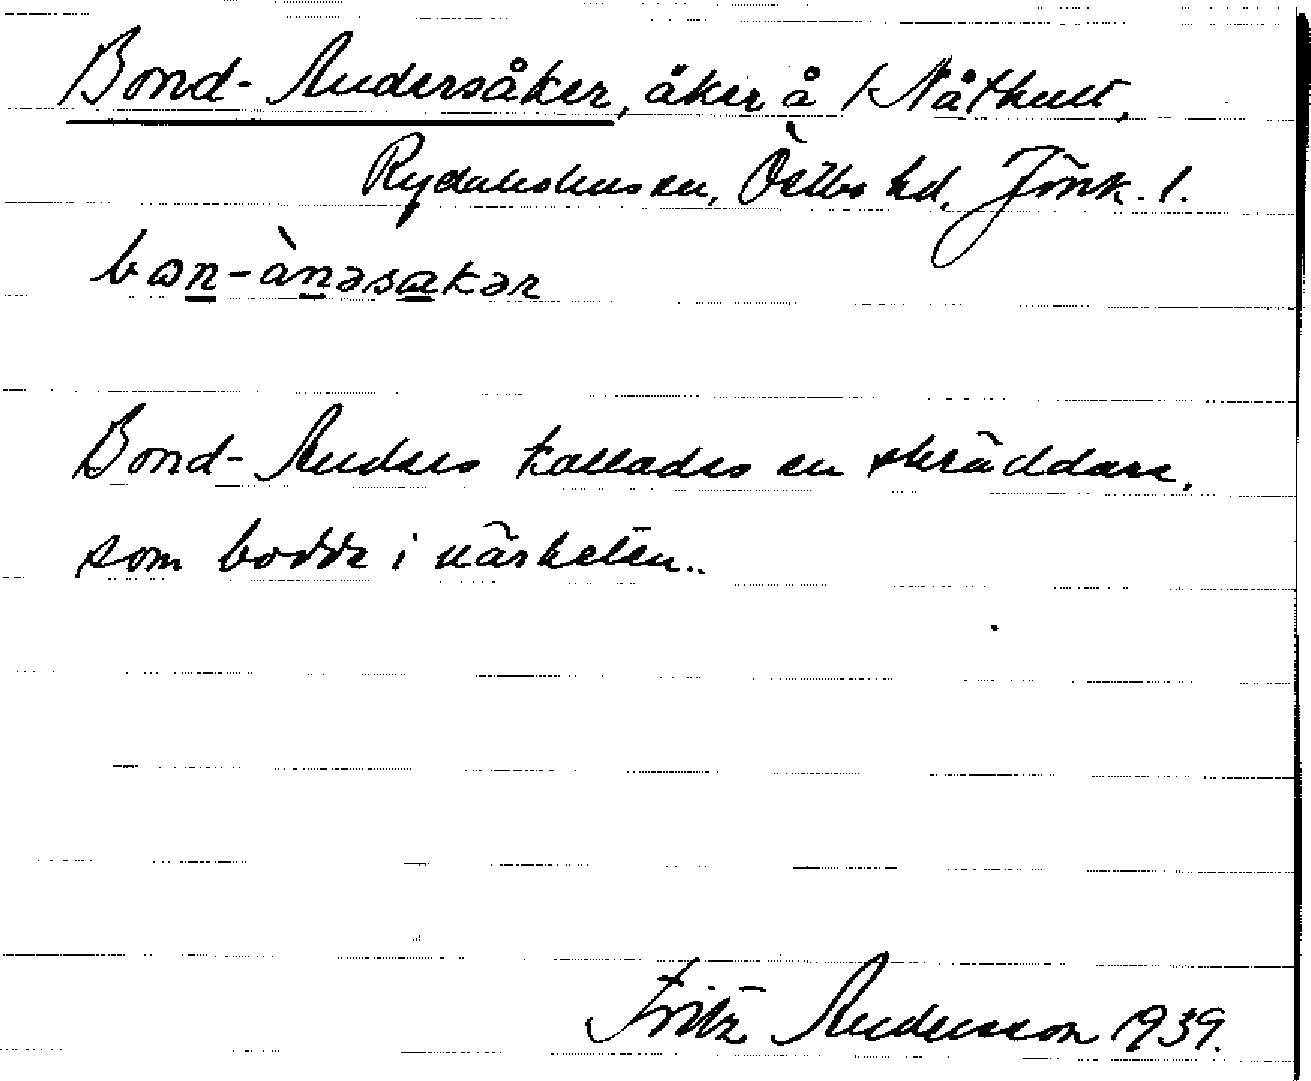 Bond-Andersåker, åker å Nåthult,
Rydaholms sn, Östbo hd, Jönk. l.
bɷn-ànəsakər
Bond-Anders kallades en skräddare,
som bodde i närheten..
Fritz Andersson 1939.